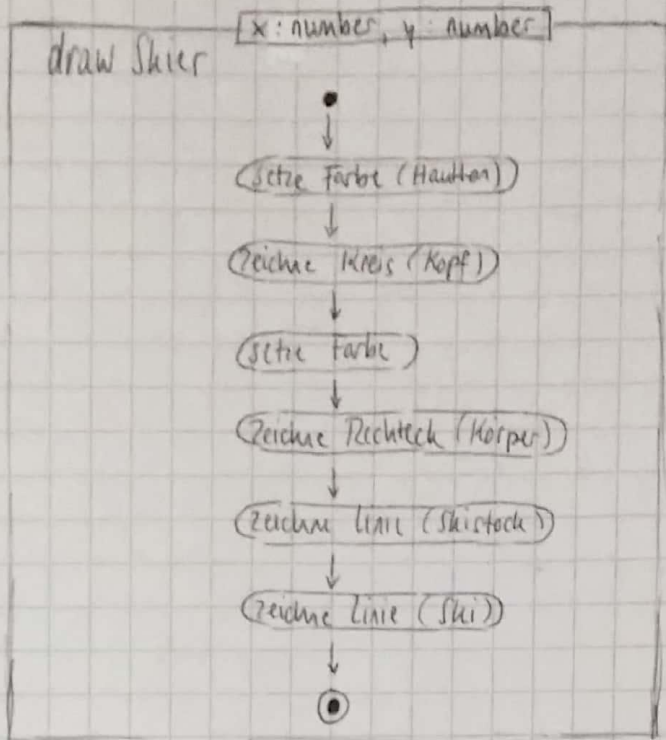 x : number, y : number
draw Skier
setze Farbe (Hautton)
Zeichne Kreis (Kopf)
setze Farbe
Zeichne Rechteck (Körper)
Zeichne Linie (Skistock)
Zeichne Linie (Ski)